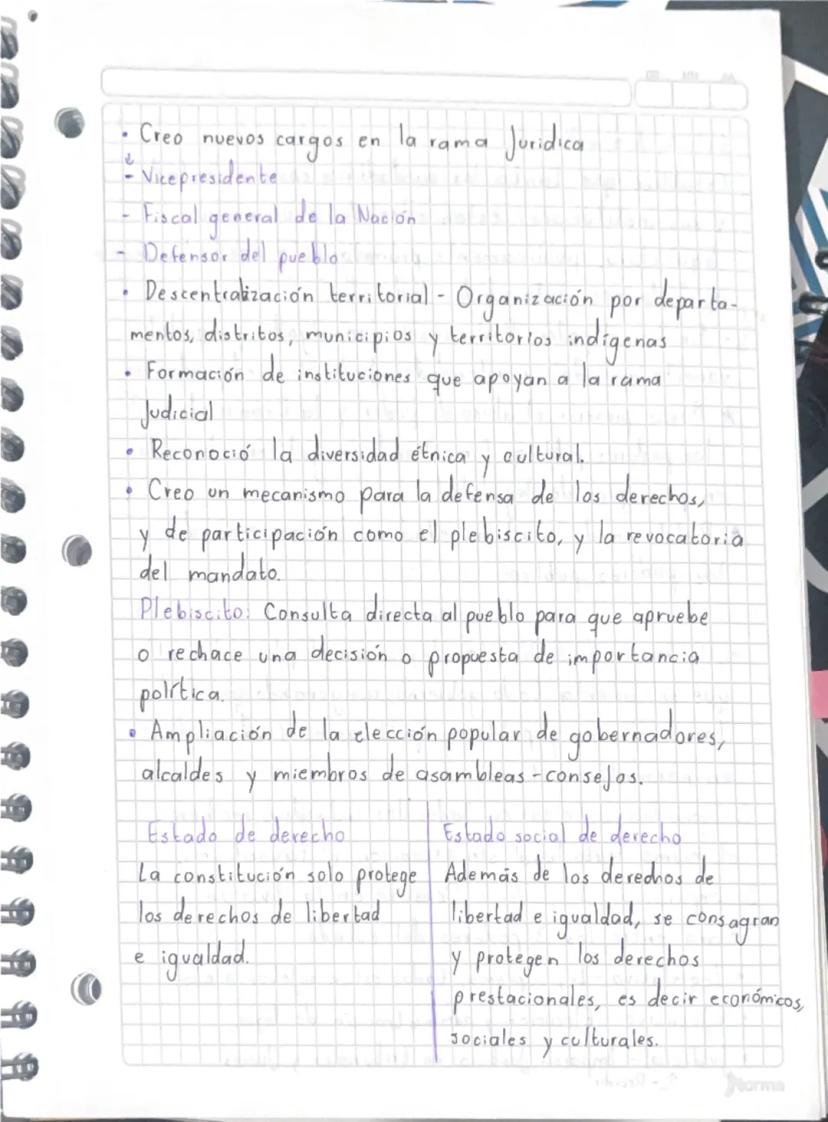 • Creo nuevos cargos en la rama Juridica
- Vicepresidente
- Fiscal general de la Nación
- Defensor del pueblo
• Descentralización territorial - Organización por departa-
mentos, distritos, municipios y territorios indígenas
• Formación de instituciones que apoyan a la rama
Judicial
• Reconoció la diversidad étnica y cultural.
• Creo un mecanismo para la defensa de los derechos,
y de participación como el plebiscito, y la revocatoria
del mandato.
Plebiscito: Consulta directa al pueblo para que apruebe
o rechace una decisión o propuesta de importancia
política.
• Ampliación de la elección popular de gobernadores,
alcaldes y miembros de asambleas - consejos.
Estado de derecho
La constitución solo protege
los derechos de libertad
e igualdad.
Estado social de derecho
Además de los derechos de
libertad e igualdad, se consagran
y protegen los derechos
prestacionales, es decir económicos,
sociales y culturales.
Norma